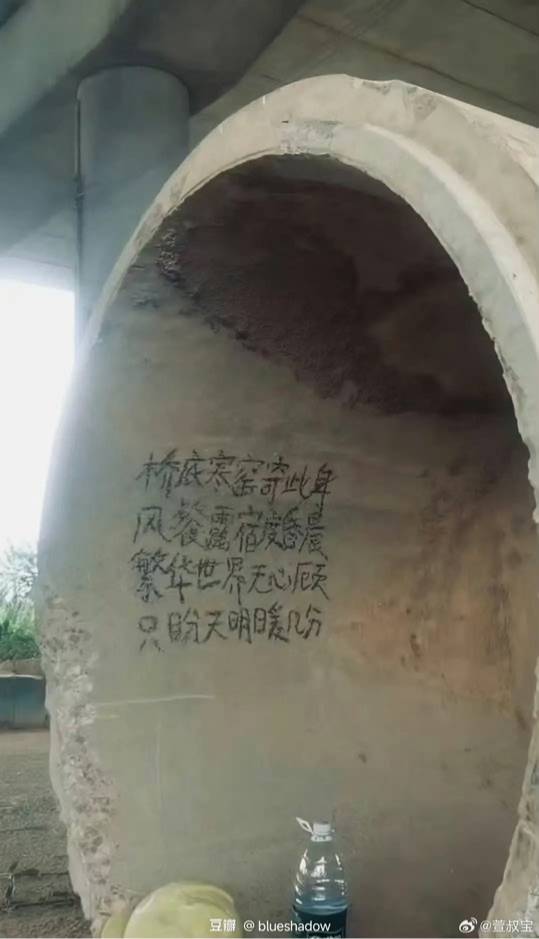 桥底寒窑寄此身
风餐露宿度昏晨
繁华世界无心顾
只盼天明暖几分
豆瓣 @ blueshadow
@萱叔宝